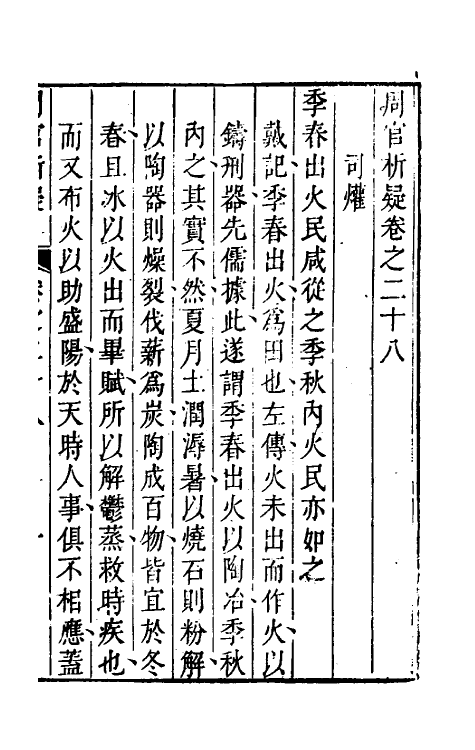 周官析疑卷之二十八
司爟
季春出火民咸從之季秋內火民亦如之
戴記季春出火爲田也左傳火未出而作火以
鑄刑器先儒據此遂謂季春出火以陶冶季秋
內之其實不然夏月土潤溽暑以燒石則粉解
以陶器則燥裂伐薪爲炭陶成百物皆宜於冬
春且冰以火出而畢賦所以解鬱蒸救時疾也
而又布火以助盛陽於天時人事俱不相應蓋